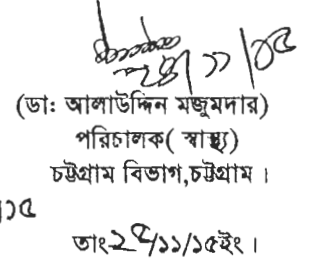 (ডা: আলাউদ্দিন মজুমদার)
পরিচালক( স্বাস্থ্য)
চট্টগ্রাম বিভাগ,চট্টগ্রাম ।
১৫
তাং-২৫/১১/১৫ইং ।